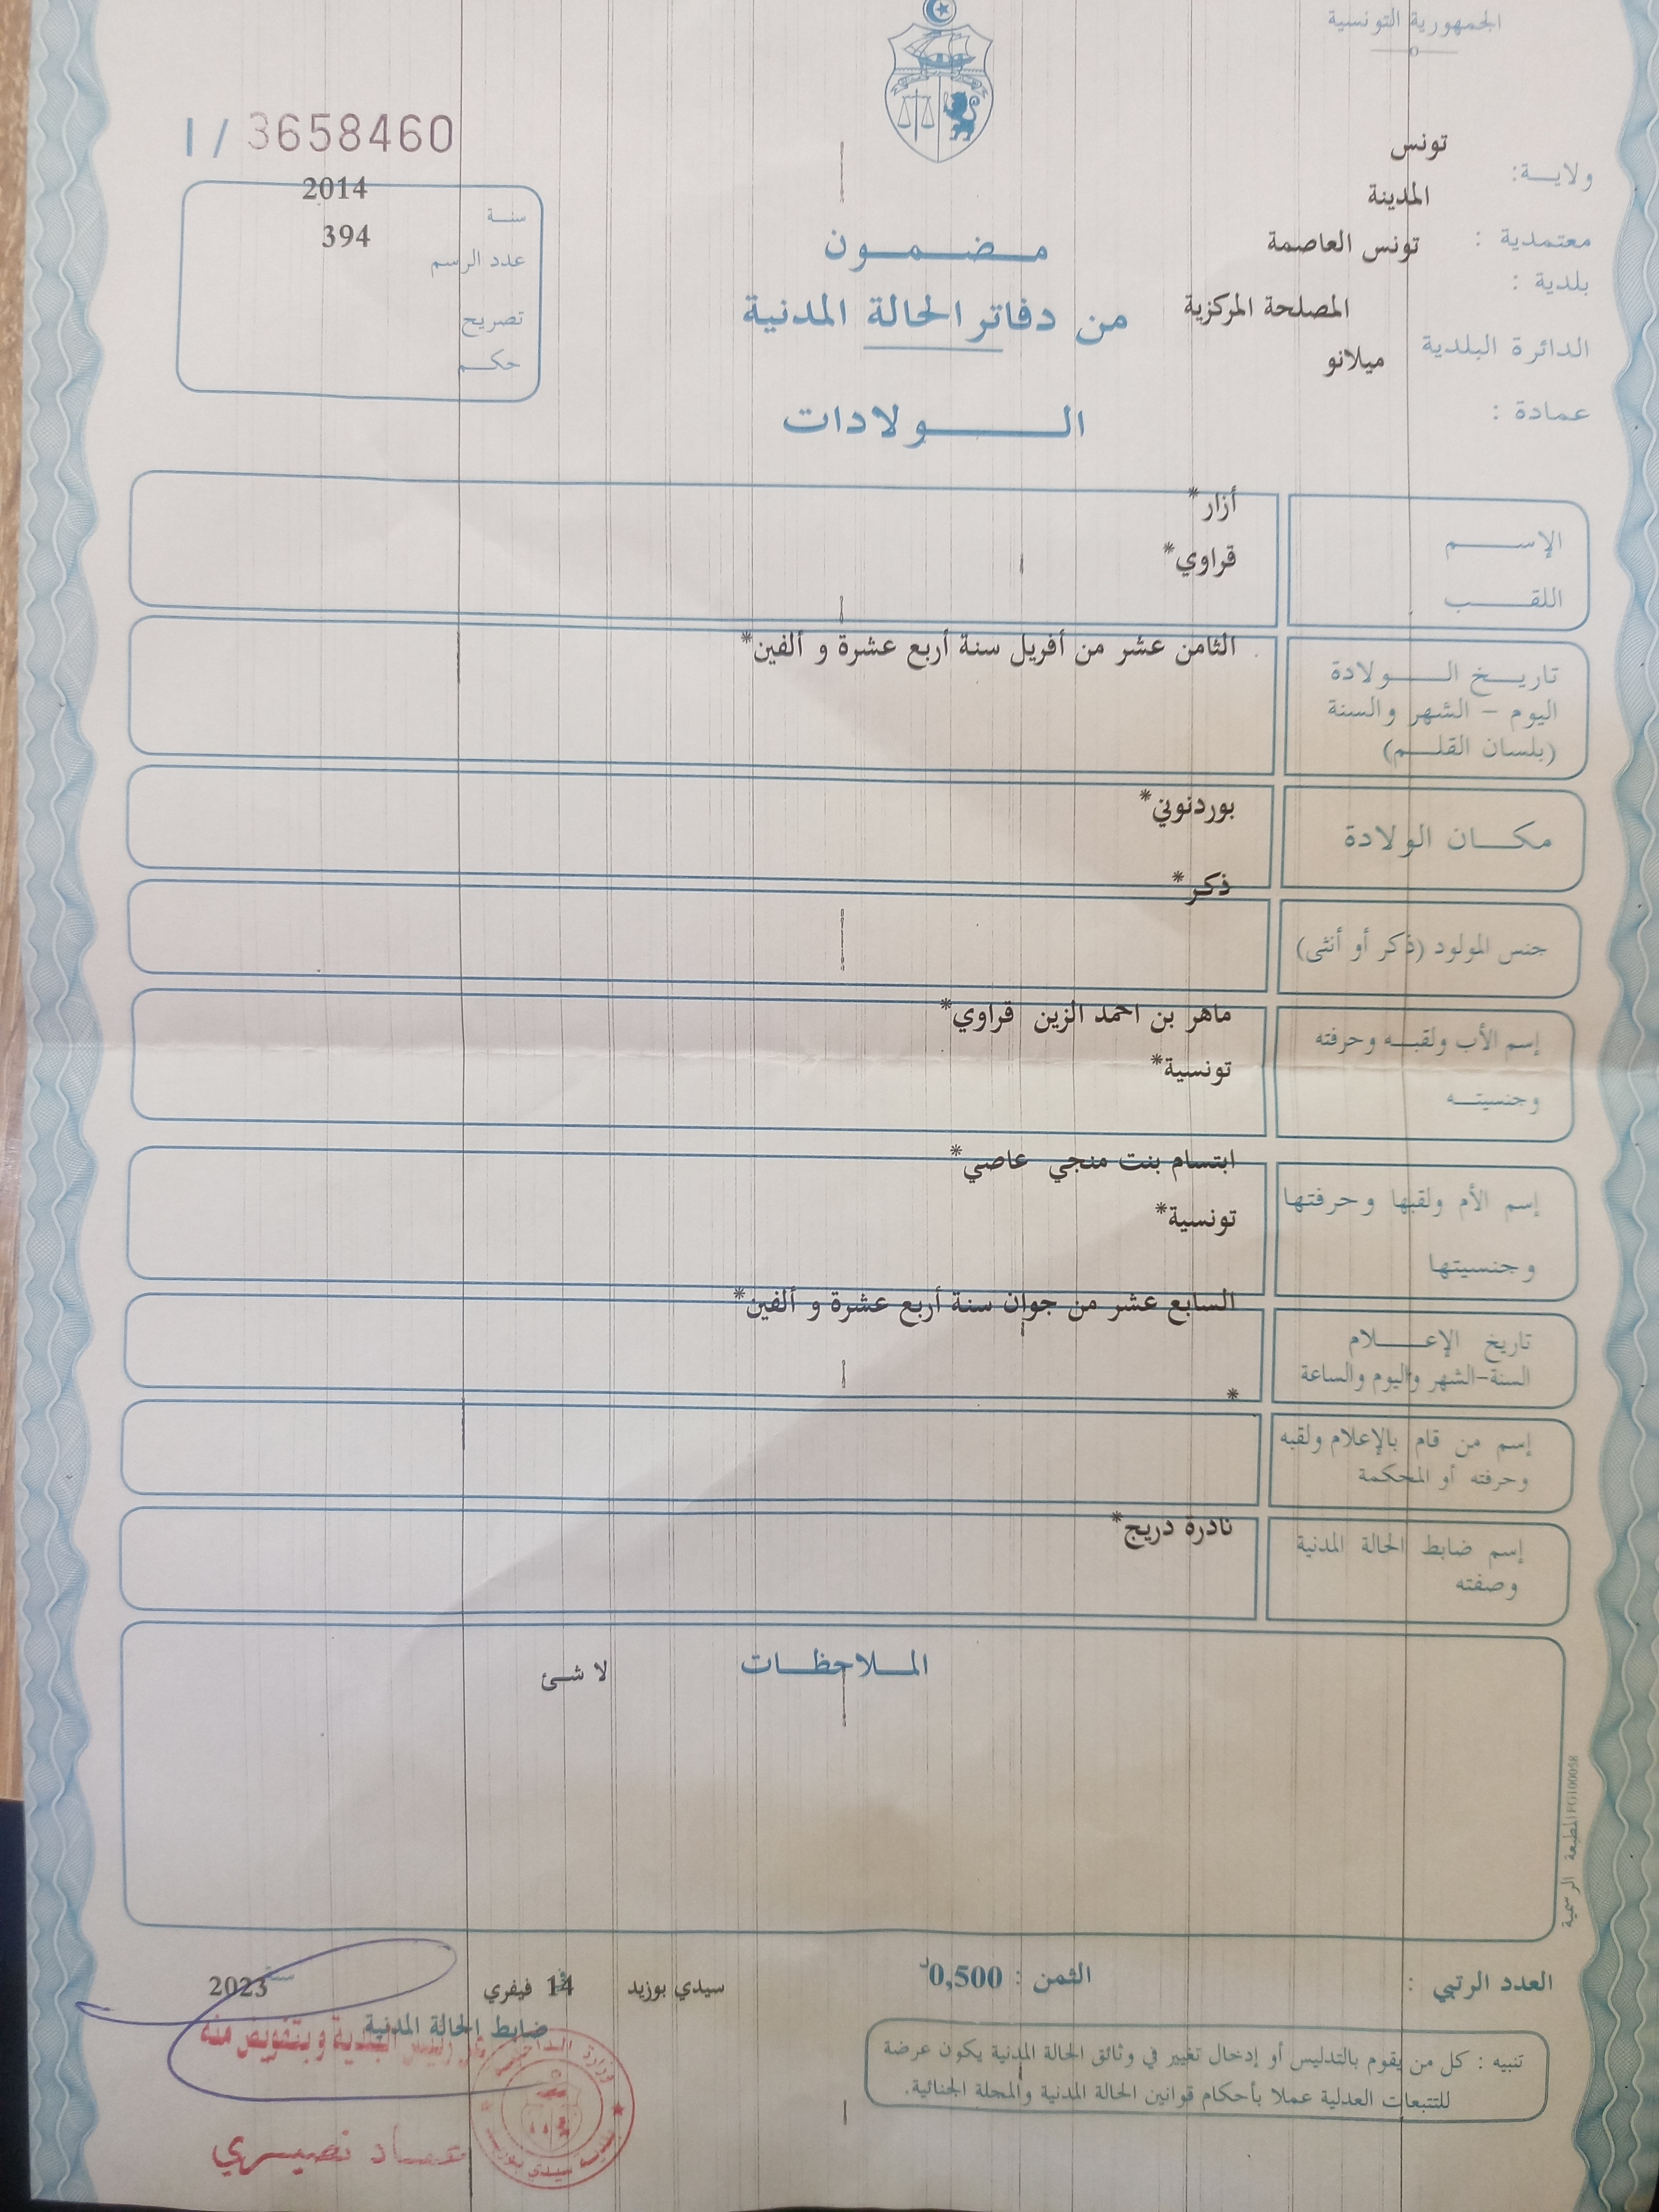 الجمهورية التونسية
1 / 3658460
ولاية: تونس
المدينة
معتمدية : تونس العاصمة
بلدية :
المصلحة المركزية
الدائرة البلدية
ميلانو
عمادة :
سنة 2014
عدد الرسم 394
تصريح
حكم
مضمون
من دفاتر الحالة المدنية
الولادات
الإسم أزار*
اللقب قراوي*
تاريخ الولادة
اليوم - الشهر والسنة
(بلسان القلم)
الثامن عشر من أفريل سنة أربع عشرة و ألفين*
مكان الولادة بوردنوني*
جنس المولود (ذكر أو أنثى) ذكر*
إسم الأب ولقبه وحرفته
وجنسيته
ماهر بن احمد الزين قراوي*
تونسية*
إسم الأم ولقبها وحرفتها
وجنسيتها
ابتسام بنت منجي عاصي*
تونسية*
تاريخ الإعلام
السنة-الشهر واليوم والساعة
السابع عشر من جوان سنة أربع عشرة و ألفين*
إسم من قام بالإعلام ولقبه
وحرفته أو المحكمة
*
إسم ضابط الحالة المدنية
وصفته
نادرة دريج*
الملاحظات
لا شئ
المطبعة الرسمية
العدد الرتبي :
الثمن : 0,500د
سيدي بوزيد في 14 فيفري سنة 2023
ضابط الحالة المدنية
عن رئيس البلدية وبتفويض منه
عماد نصيري
تنبيه : كل من يقوم بالتدليس أو إدخال تغيير في وثائق الحالة المدنية يكون عرضة
للتتبعات العدلية عملا بأحكام قوانين الحالة المدنية والمجلة الجنائية.